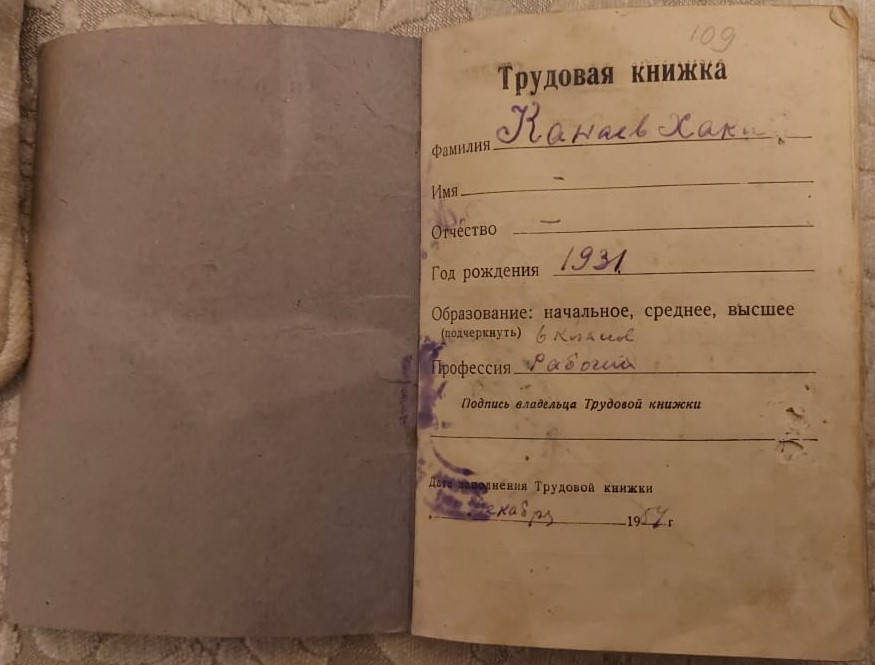 109
Трудовая книжка
Фамилия Канаев
Имя –
Отчество –
Год рождения 1931
Образование: начальное, среднее, высшее
(подчеркнуть) 6 класс
Профессия Рабочий
Подпись владельца Трудовой книжки
Дата заполнения Трудовой книжки
декабрь 1957 г